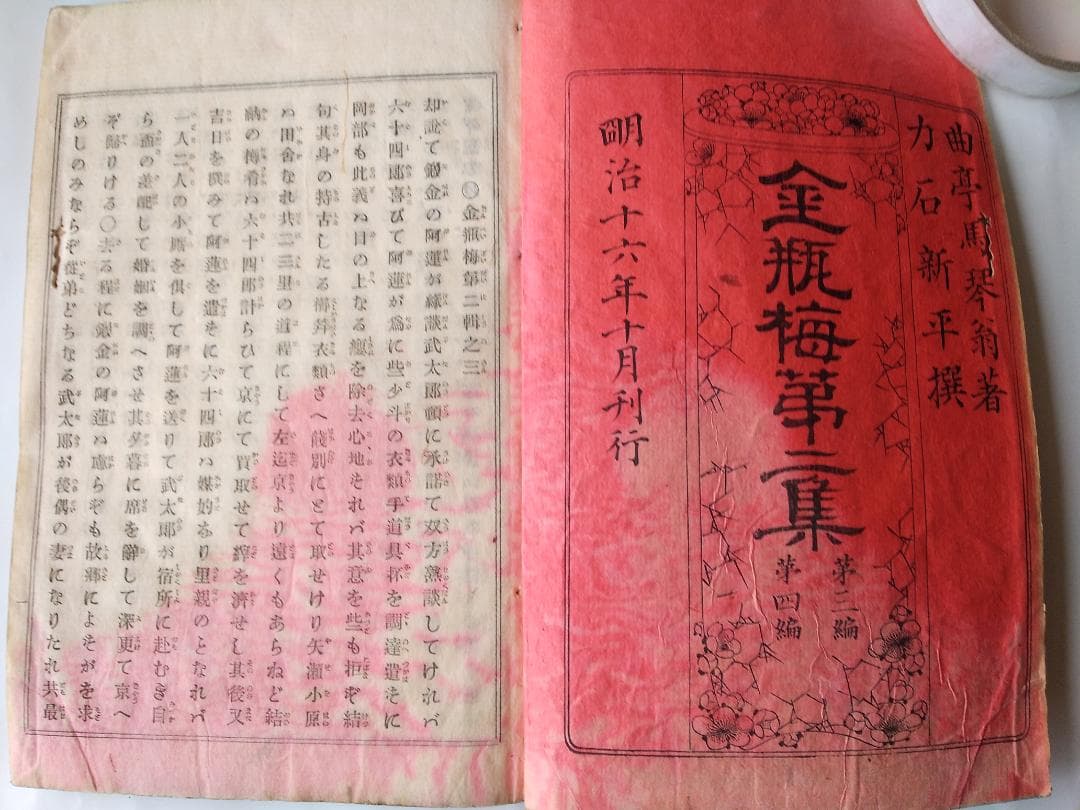 曲亭馬琴翁著
力石新平撰
金瓶梅第二集
第三編
第四編
明治十六年十月刊行
○金瓶梅第二輯之三
却説て鍛金の阿蓮が縁談武太郎頓に承諾て双方熟談してけれバ
六十四郎喜びて阿蓮が為に些少斗の衣類手道具杯を調達遣そに
岡部も此義ハ日の上なる瘤を除去心地それバ其意を些も拒ぞ結
句其身の持古したる衣類さへ餞別にとて取せけり矢瀬小原
ハ田舎なれ共二三里の道程にして左迄京より遠くもあらねど結
納の樽肴ハ六十四郎計らひて京にて買取せて擇を濟せし其後又
吉日を撰みて阿蓮を遣そに六十四郎ハ媒妁あり里親のとなれバ
一人二人の小厮を倶して阿蓮を送りて武太郎が宿所に赴むき自
ら盃の差配して婚姻を調へさせ其夕暮に席を辭して深更て京へ
ぞ歸りける○去る程に鍛金の阿蓮ハ慮らぞも故郷によそがを求
めしのみならぞ従弟どちなる武太郎が後偶の妻になりたれ共最